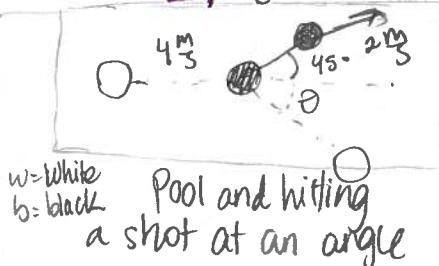 4 m/s
45° 2 m/s
θ
w=White
b=black
Pool and hitting
a shot at an angle